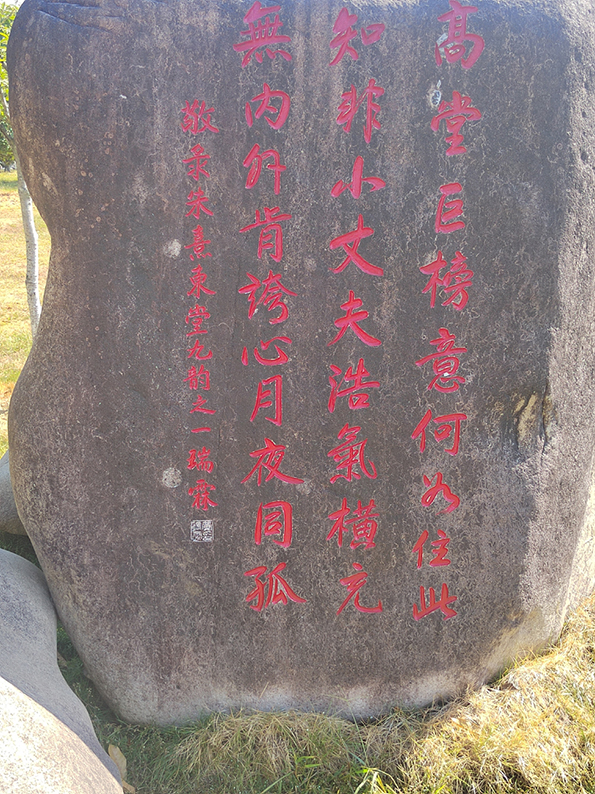 高堂巨榜意何如住此
知非小丈夫浩氣橫元
無内外肯誇心月夜同孤
敬录朱熹東堂九韵之一瑞霖